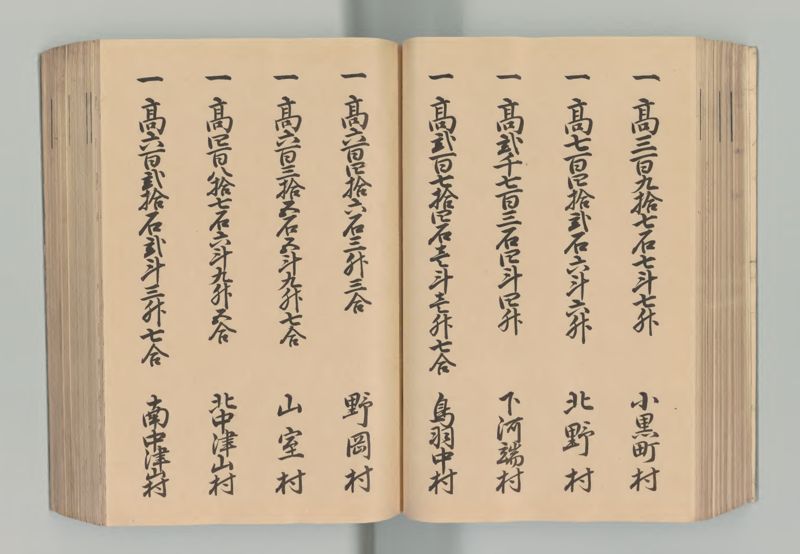 一 高三百九拾七石七斗七升 小黒町村
一 高七百四拾弐石六斗六升 北野村
一 高弐千七百三石四斗四升 下河端村
一 高弐百七拾四石壱斗壱升七合 鳥羽中村
一 高六百四拾六石三升三合 野岡村
一 高六百三拾五石五斗九升七合 山室村
一 高四百八拾七石六斗九升五合 北中津山村
一 高六百弐拾石弐斗三升七合 南中津山村